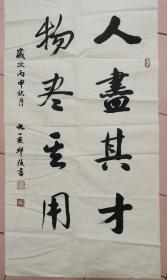 人盡其才
物尽其用
歲次丙申秋月